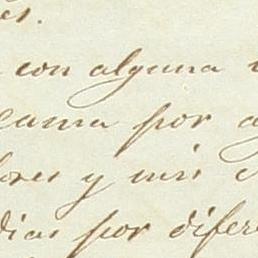 es.
con alguna
cama por a
ores y mis
dias por difere